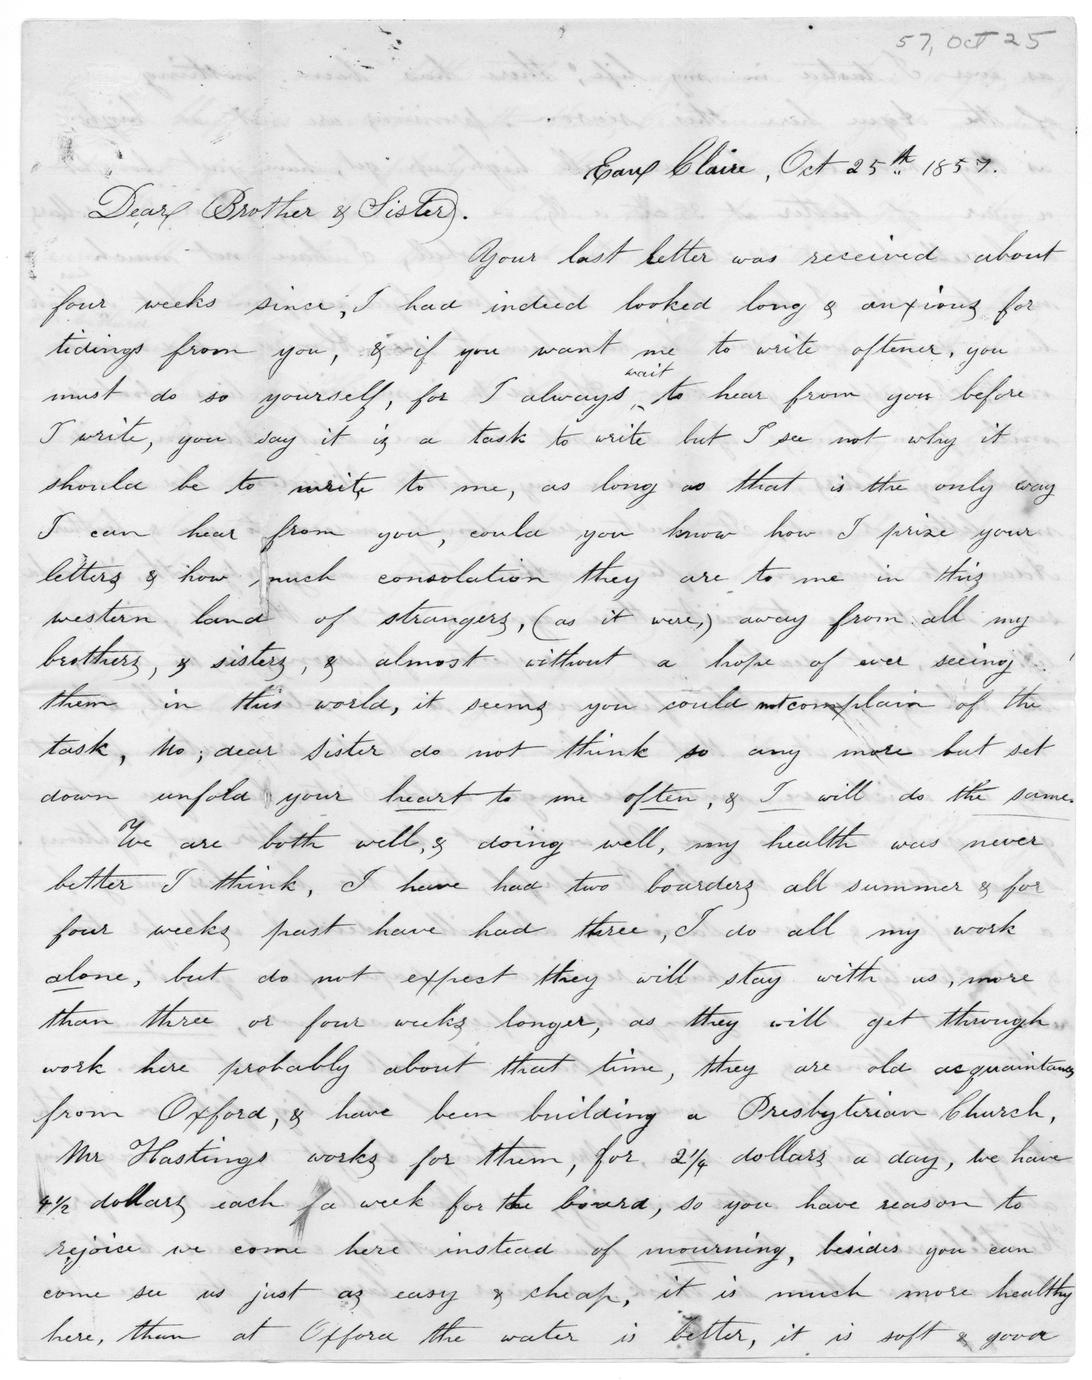 57, Oct 25
Eau Claire, Oct 25th 1857.
Dear Brother & Sister.
Your last letter was received about
four weeks since, I had indeed looked long & anxious for
tidings from you, & if you want me to write oftener, you
must do so yourself, for I always wait to hear from you before
I write, you say it is a task to write but I see not why it
should be to write to me, as long as that is the only way
I can hear from you, could you know how I prize your
letters & how much consolation they are to me in this
western land of strangers, (as it were,) away from all my
brothers, & sisters, & almost without a hope of ever seeing
them in this world, it seems you could not complain of the
task, No; dear Sister do not think so any more but set
down unfold your heart to me often, & I will do the same.
We are both well, & doing well, my health was never
better I think, I have had two boarders all summer & for
four weeks past have had three, I do all my work
alone, but do not expect they will stay with us, more
than three or four weeks longer, as they will get through
work here probably about that time, they are old acquaintances
from Oxford, & have been building a Presbyterian Church,
Mr Hastings works for them, for 2 1/4 dollars a day, we have
4 1/2 dollars each a week for the board, so you have reason to
rejoice we come here instead of mourning, besides you can
come see us just as easy & cheap, it is much more healthy
here, than at Oxford the water is better, it is soft & good